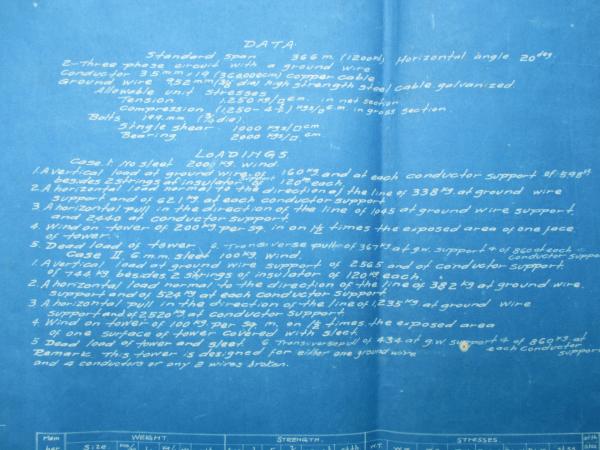 DATA
Standard span 366 m. (1200ft) Horizontal angle 20 deg
2-Three phase circuit with a ground wire
Conductor 3.5 mm x 19 (360,000cm) copper cable
Ground wire 9.52 mm (3/8 dia) high strength steel cable galvanized
Allowable unit stresses
Tension 1.250 kgs/□cm. in net section
Compression (1.250-4 ) kgs/□cm. in gross section
Bolts mm. dia.
Single shear 1000 kgs/□cm
Bearing 2000 kgs/□cm
LOADINGS
Case I. No sleet 200. kg wind.
1. A vertical load at ground wire of 160 kg and at each conductor support of 598 kg
besides 2 strings of insulator of 120 kg each
2. A horizontal load normal to the direction of the line of 338 kg at ground wire
support and of 621 kg at each conductor support
3. A horizontal pull in the direction of the line of 1005 at ground wire support
and 2,640 at conductor support
4. Wind on tower of 200 kg per sq. m on 1½ times the exposed area of one face
of tower.
5. Dead load of tower. 6. Transverse pull of 367 kg at g.w. support & of 860 at each
conductor support
Case II 6 m.m. sleet 100 kg wind.
1. A vertical load at ground wire support of 256 and of conductor support
of 744 kg besides 2 strings of insulator of 120 kg each
2. A horizontal load normal to the direction of the line of 382 kg at ground wire.
support and of 524 kg at each conductor support.
3. A horizontal pull in the direction of the line of 1,235 kg at ground wire
support and of 2,520 kg at conductor support
4. Wind on tower of 100 kg per sq m. on 1½ times the exposed area
of one surface of tower covered with sleet
5 Dead load of tower and sleet 6 Transverse pull of 434 at g.w. support & of 860 kg at
each conductor support
Remark This tower is designed for either one ground wire
and 4 conductors or any 2 wires broken.
Mem WEIGHT STRENGTH. STRESSES
ber Size